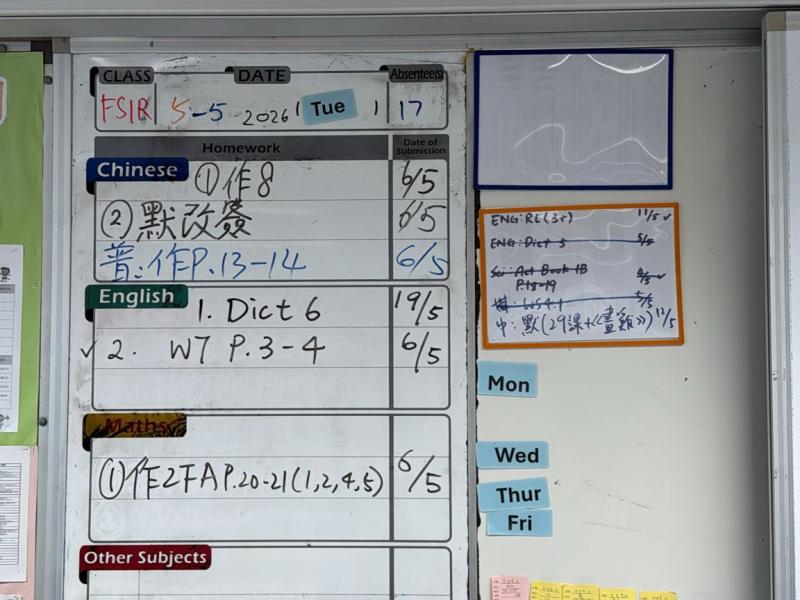 CLASS DATE Absentees
5-5 2026 Tue 17
Homework Date of Submission
Chinese ①作8 6/5
②默改簽 6/5
普:作P.13-14 6/5
English 1. Dict 6 19/5
✓ 2. W7 P.3-4 6/5
Maths
①作2FA P.20-21(1,2,4,5) 6/5
Other Subjects
ENG: RE(3+) 11/5 ✓
ENG: Dict 5 5/5
Sci: Act Book 1B
P.18-19 ✓
5/5
中:默(29課+《畫雞》) 12/5
Mon
Wed
Thur
Fri